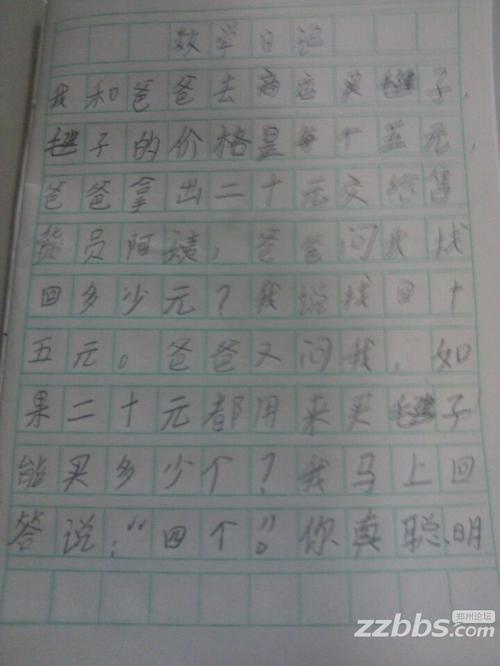 数学日记
我和爸爸去商店买毽子,
毽子的价格是每个五元,
爸爸拿出二十元交给售
货员阿姨,爸爸问我找
回多少元?我说找回十
五元。爸爸又问我,如
果二十元都用来买毽子
能买多少个?我马上回
答说:“四个”。你真聪明
郑州论坛
zzbbs.com